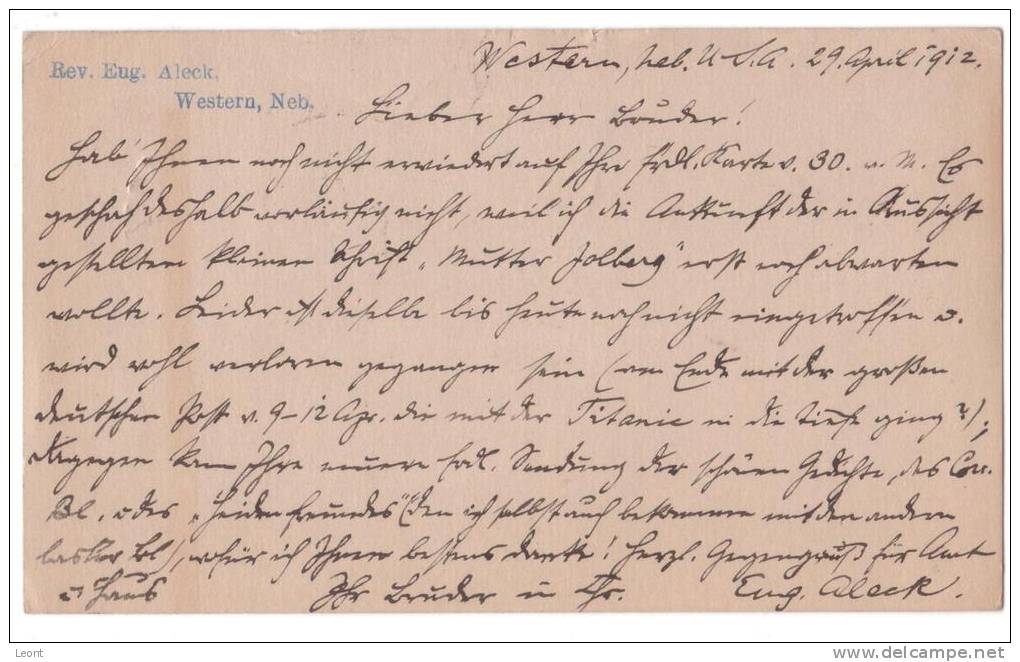 Rev. Eug. Aleck,
Western, Neb.
Western, Neb. U.S.A. 29. April 1912.
Lieber Herr Bruder!
Hab' Ihnen noch nicht erwiedert auf Ihre frdl. Karte v. 30. v. M. Es
geschah deshalb vorläufig nicht, weil ich die Ankunft der in Aussicht
gestellten kleinen Schrift „Mutter Jolberg" erst noch abwarten
wollte. Leider ist dieselbe bis heute noch nicht eingetroffen u.
wird wohl verloren gegangen sein (am Ende mit der großen
deutschen Post v. 9-12 Apr. die mit der Titanic in die Tiefe ging?);
dagegen kam Ihre neuere frdl. Sendung der schönen Gedichte, des Corr.
Bl. u des „Heidenfreundes" (den ich selbst auch bekomme mit den andern
Bl.), wofür ich Ihnen bestens danke! Herzl. Gegengruß für Amt
u Haus
Ihr Bruder in Chr.
Eug. Aleck.
Leont
delcampe.net